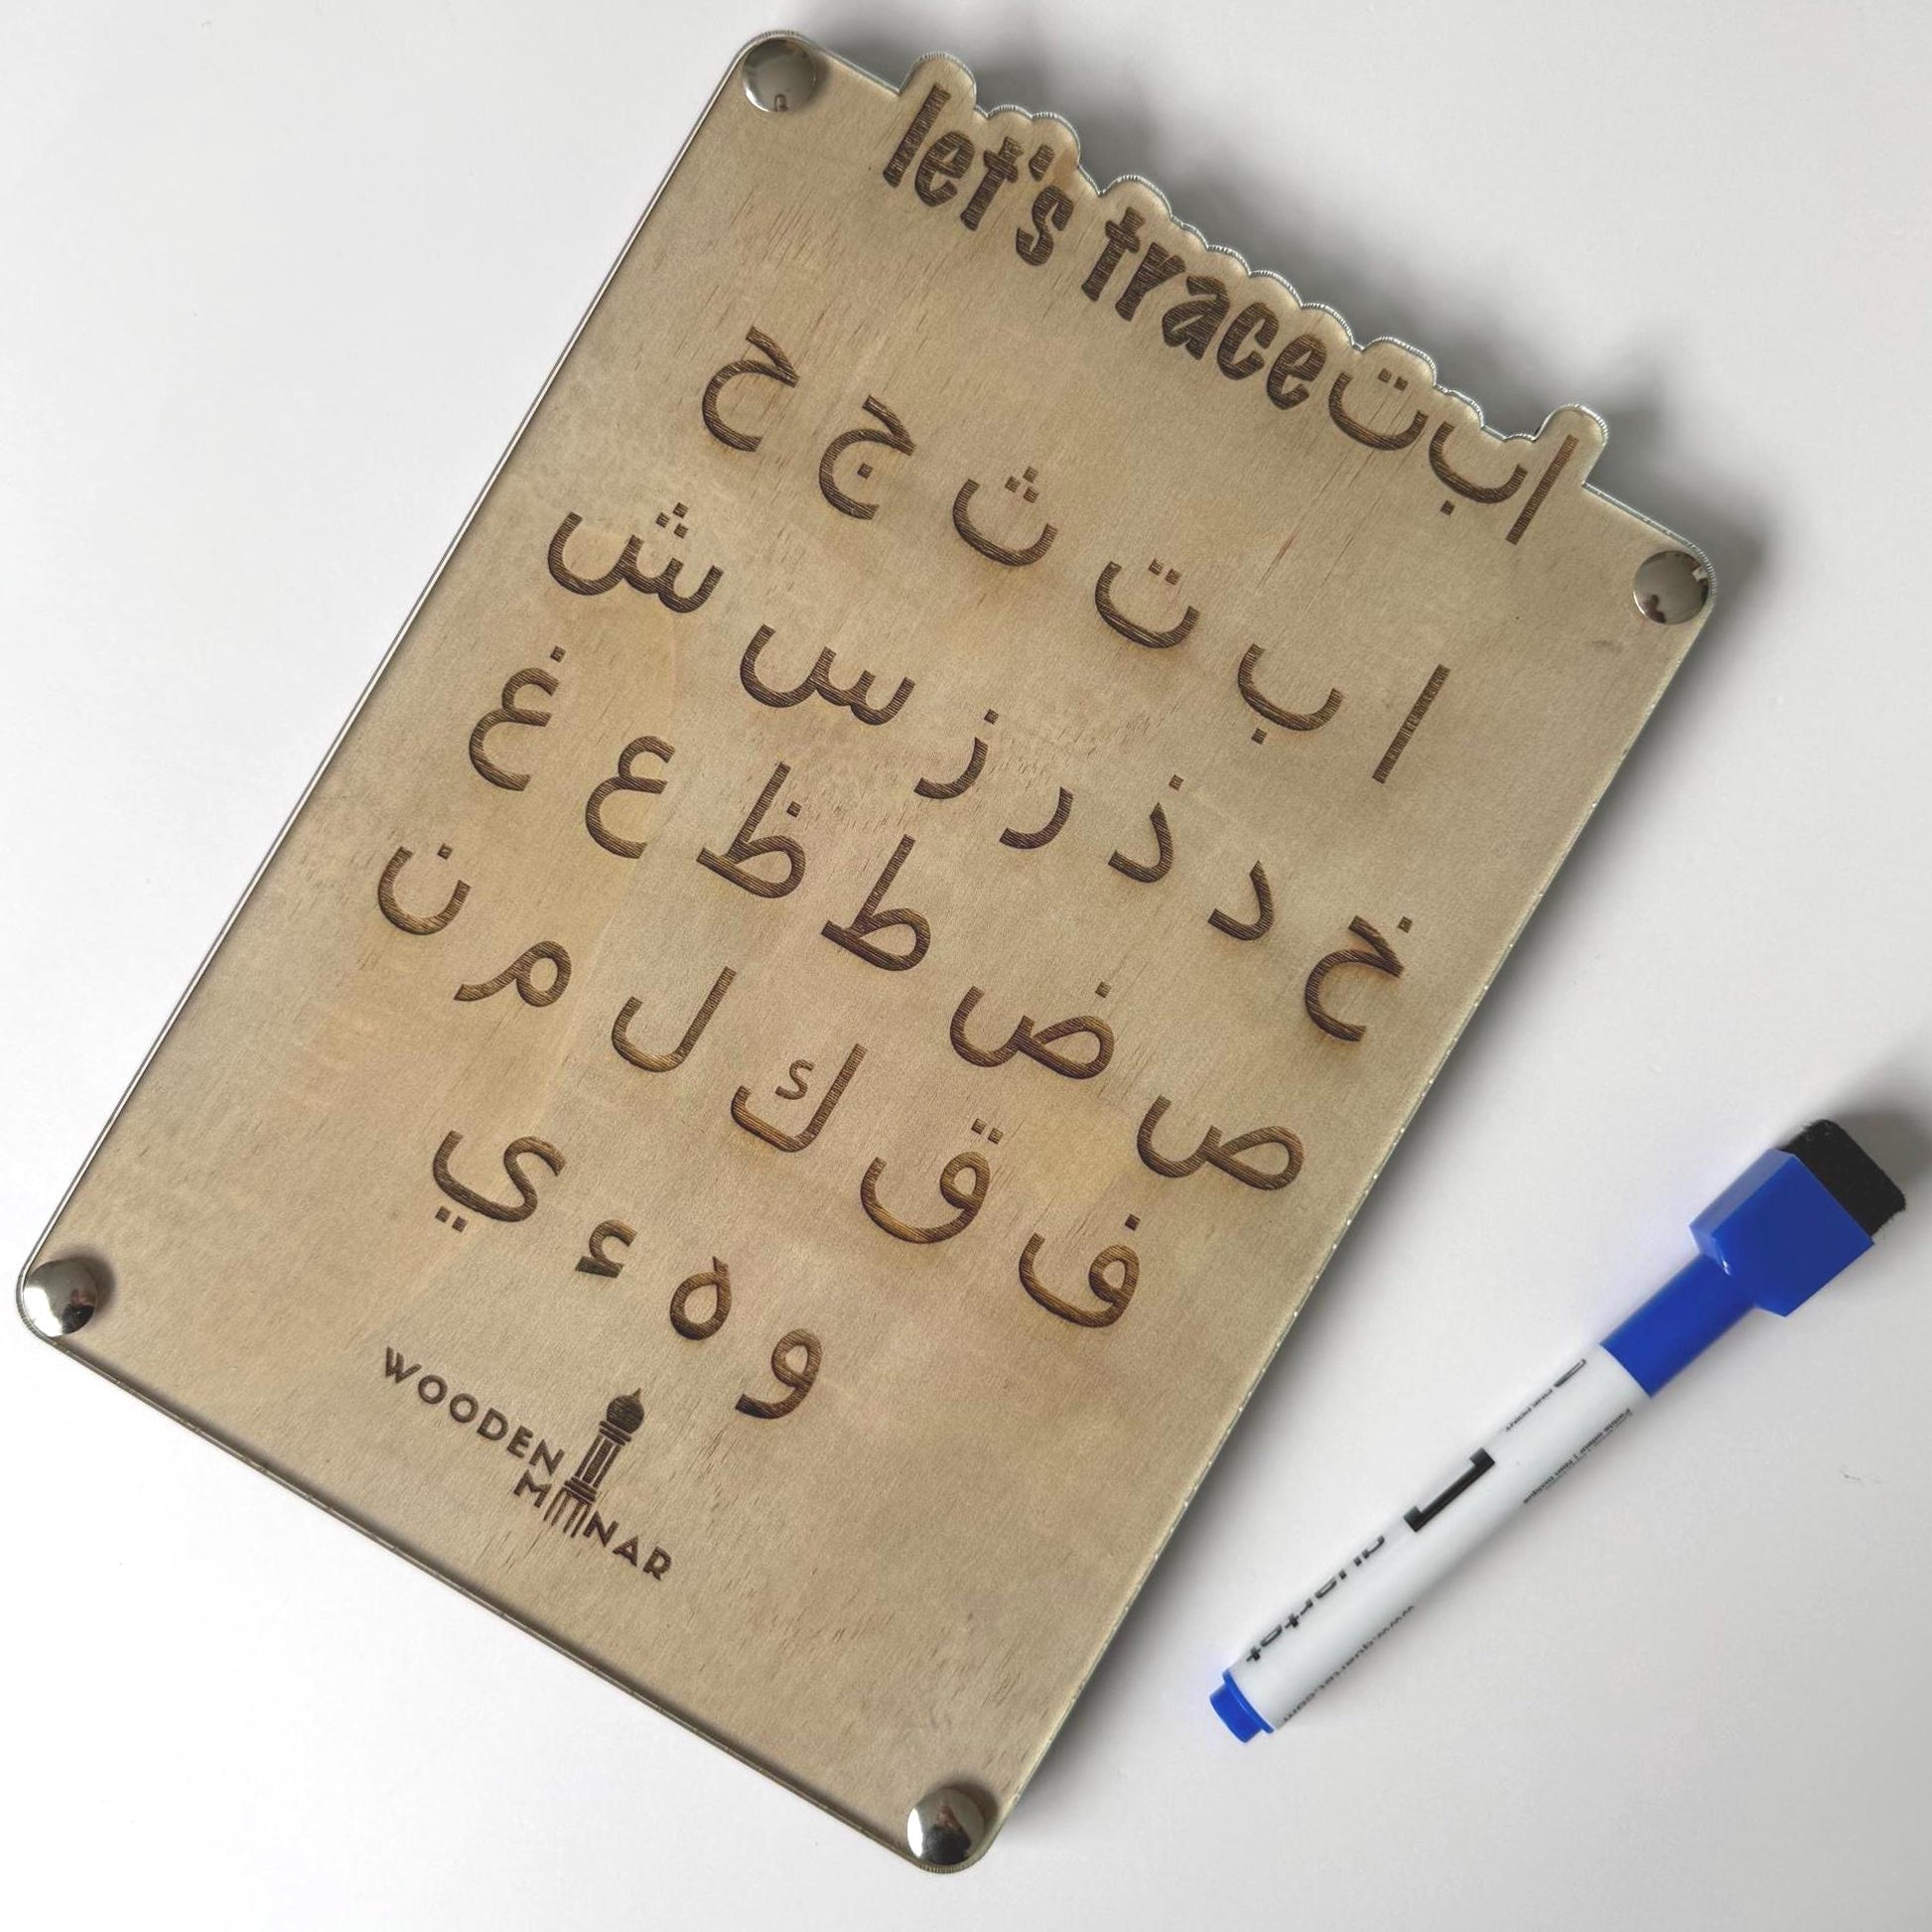 let's trace ا ب ت
ا ب ت ث ج ح
خ د ذ ر ز س ش
ص ض ط ظ ع غ
ف ق ك ل م ن
و ه ء ي
WOODEN
MINAR
quartet